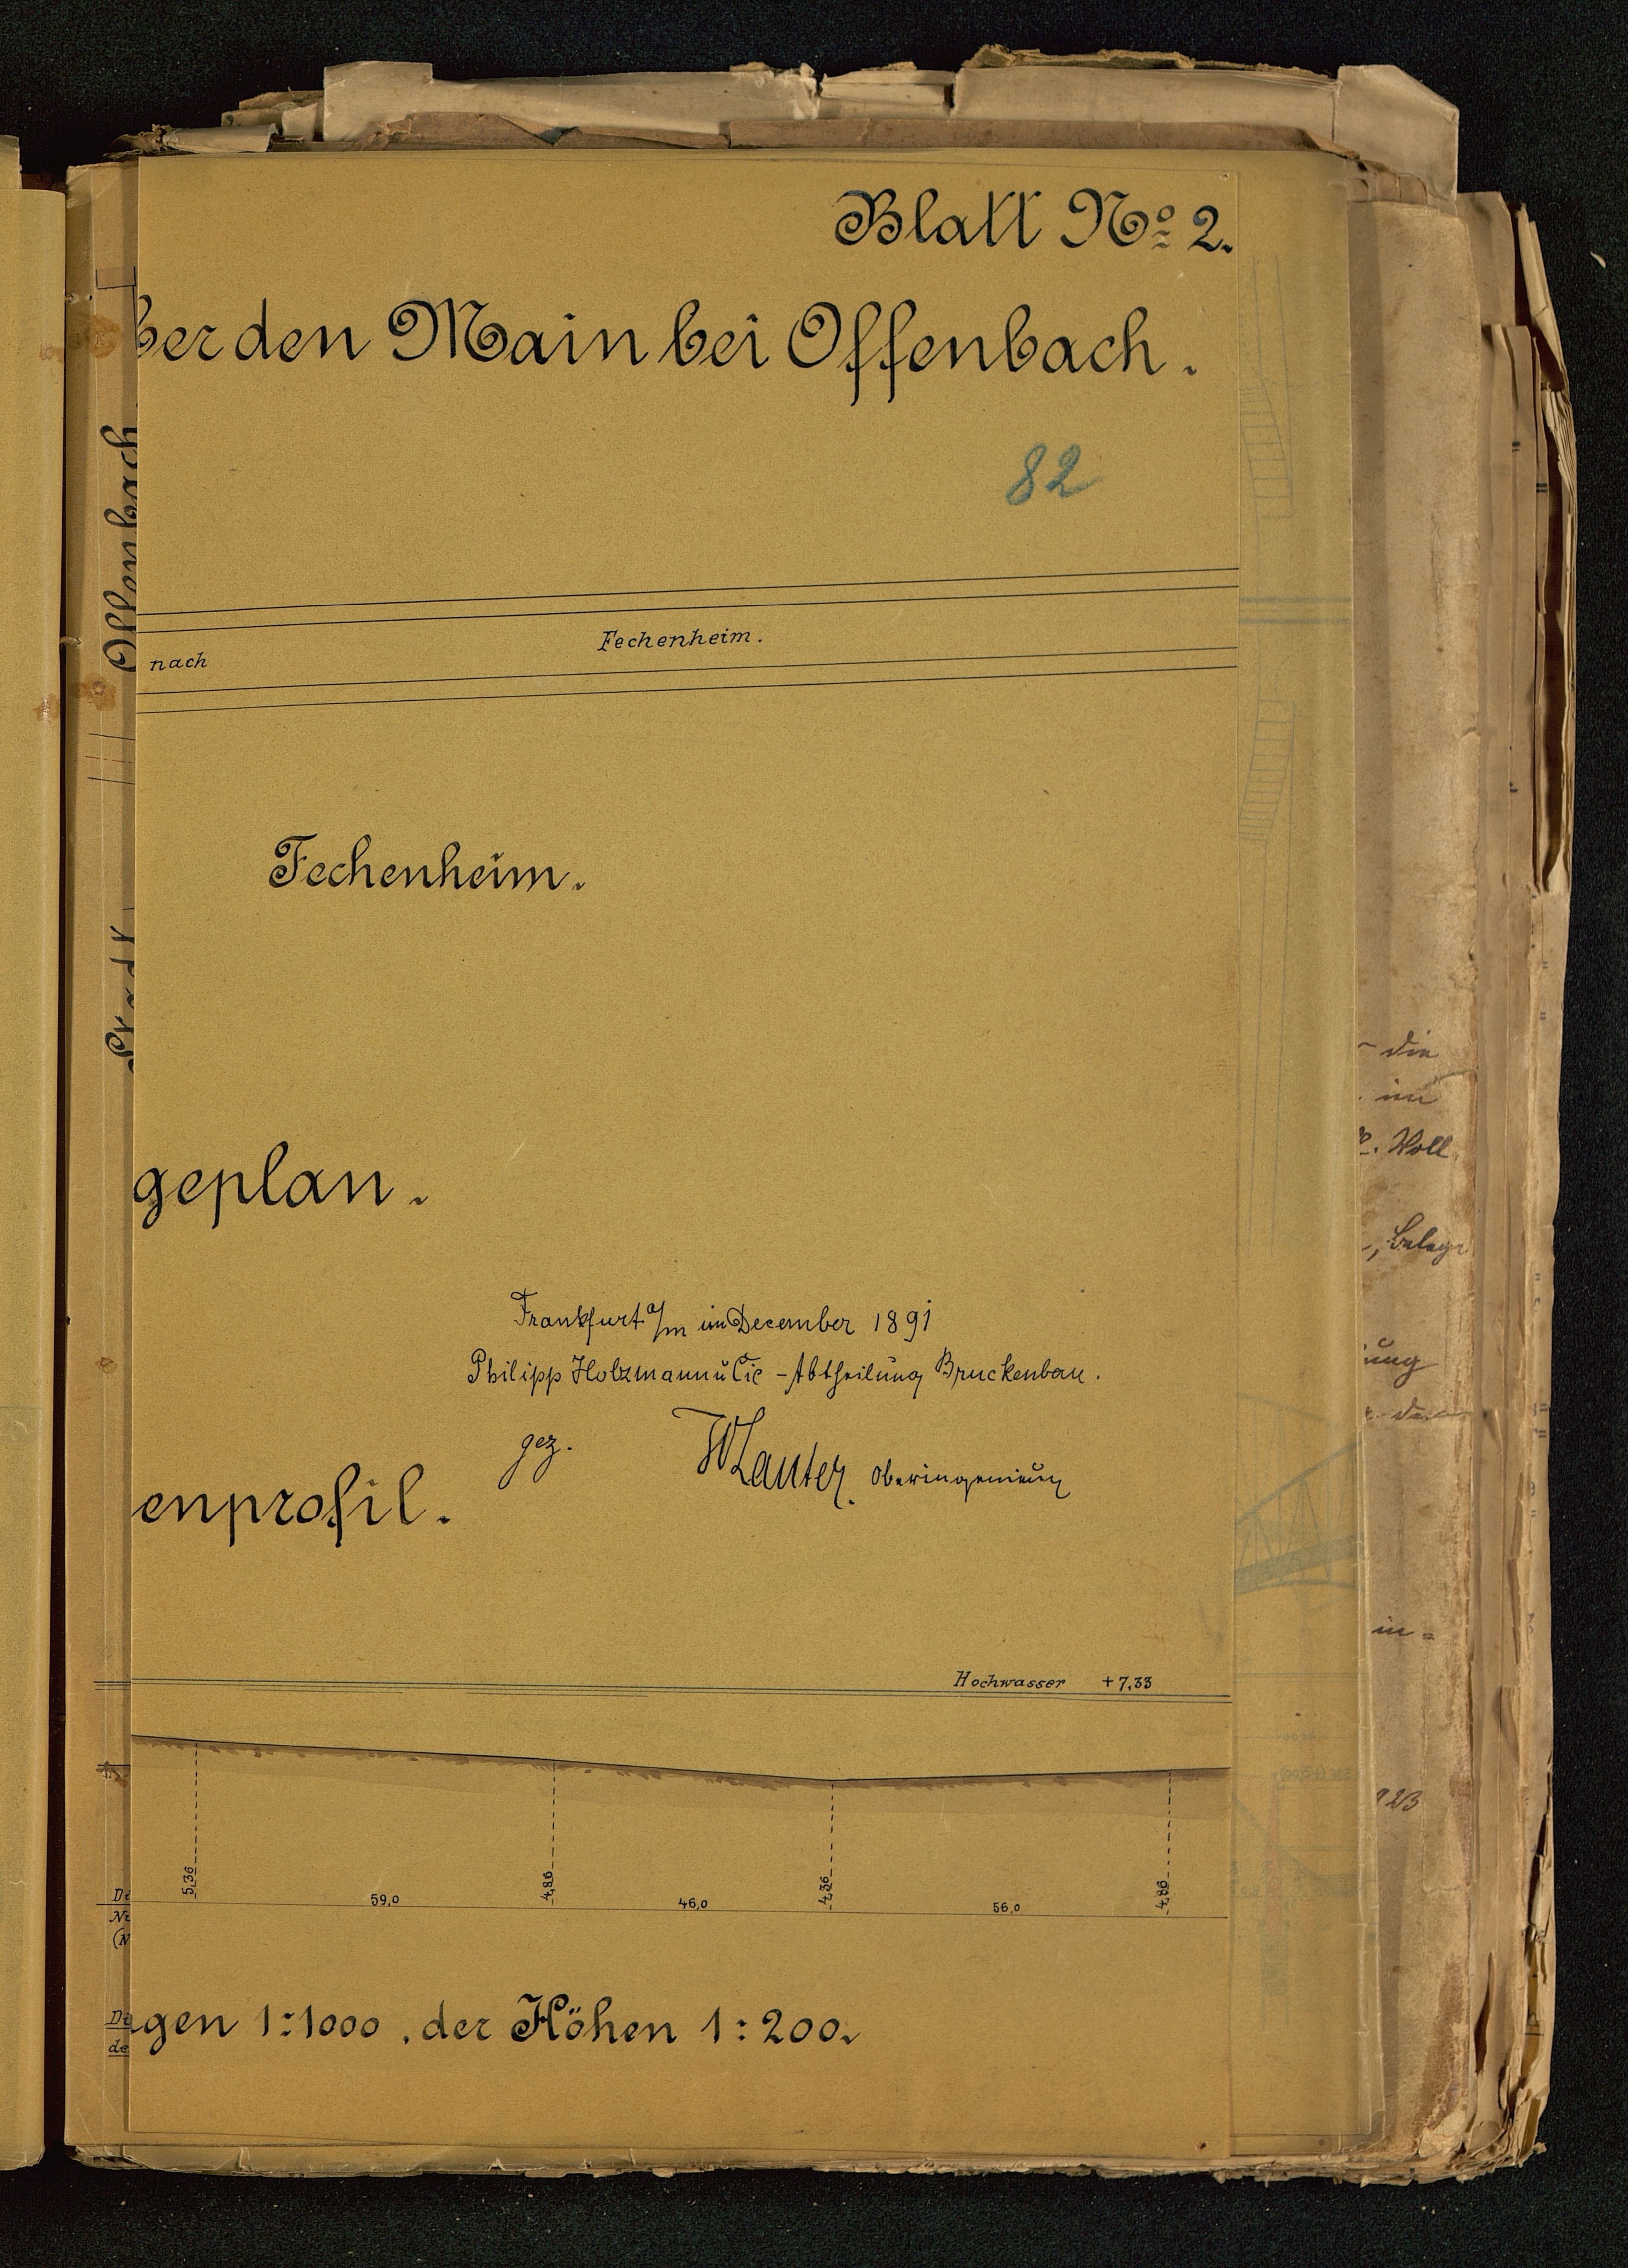 Blatt No 2.
ber den Main bei Offenbach.
82
Offenbach
nach Fechenheim.
Fechenheim.
Stadt
geplan.
Frankfurt a/m im December 1891
Philipp Holzmann u Cie - Abtheilung Bruckenbau.
gez. W Lauter. Oberingenieur
enprofil.
Hochwasser +7,33
5,36 4,86 4,36 4,86
59,0 46,0 56,0
gen 1:1000, der Höhen 1:200.
die
im
Woll
, Belege
ung
in =